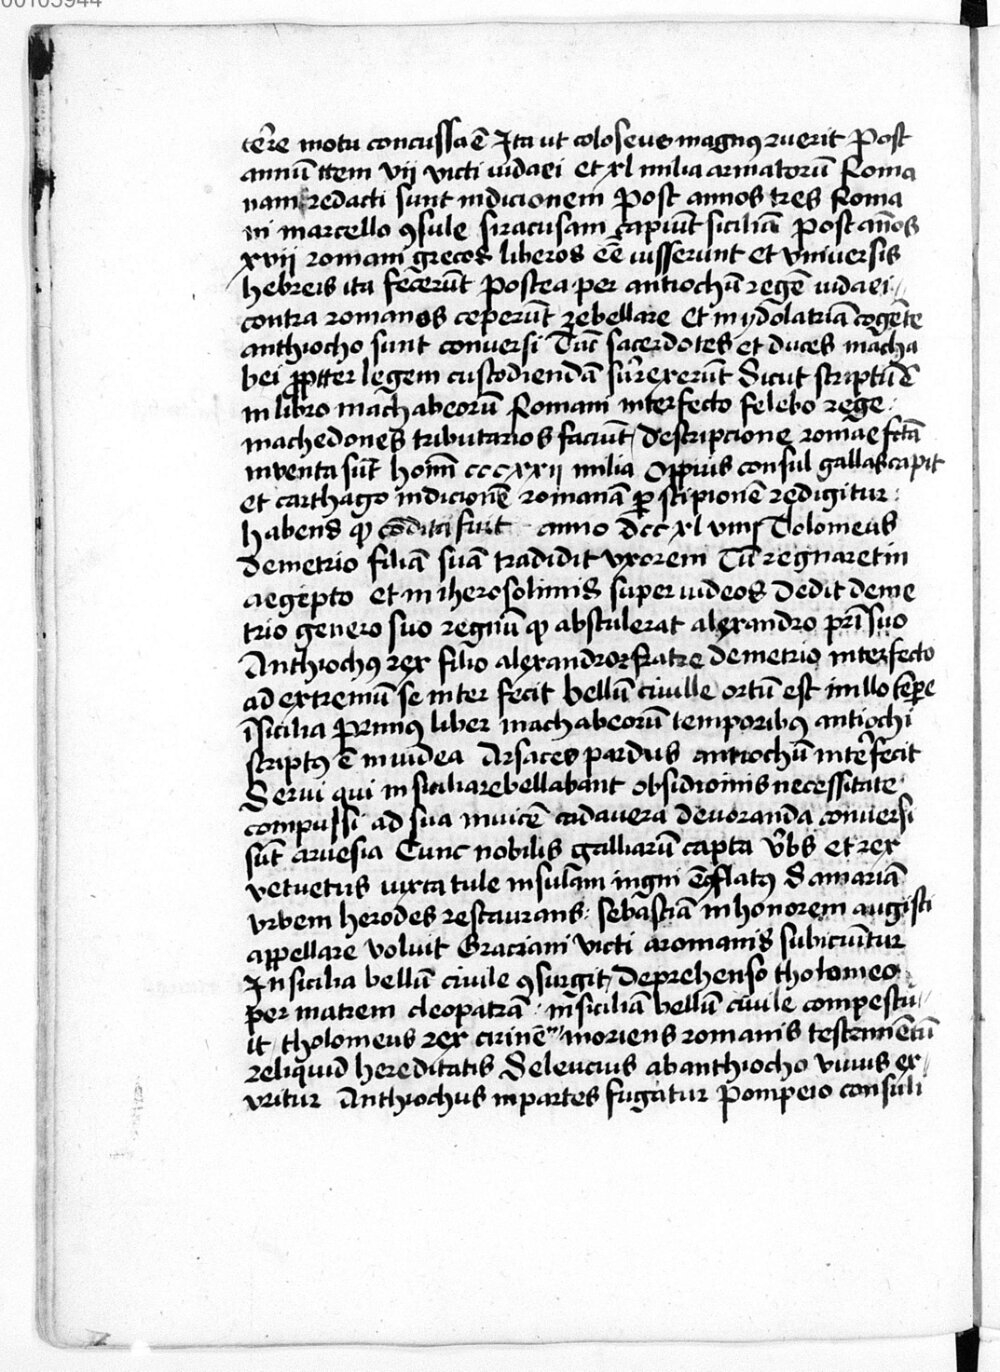 00103944
terre motu concussa ē Ita ut coloseus magnꝯ ruerit Post
annū ttem vii victi iudaei et xl milia armatorū Roma
nam redacti sunt indicionem Post annos tres Roma
ni marcello ꝯsule siracusam capiūt siciliā Post ānos
xvii romani grecos liberos eē iusserunt et vniuersis
hebreis ita fecerūt Postea per antiochū regē iudaei
contra romanos ceperūt rebellare Et in ydolatriā cogēte
anthiocho sunt conuersi Tūc sacerdotes et duces macha
bei ꝓpter legem custodiendā surrexerūt Sicut scriptū ē
in libro machabeorū Romani interfecto felebo rege
machedones tributarios faciūt descripcione romae fctā
inventa sūt homī cccxxii milia Oppius consul gallas capit
et carthago indicionē romanā ꝑ scipionē redigitur
habens ꝙ cōdita fuit anno dcc xl viiii Tolomeus
demetrio filiā suā tradidit vxorem Cū regnaret in
aegēpto et in iherosolimis super iudeos Dedit deme
trio genero suo regnū ꝙ abstulerat alexandro pr̄i suo
Anthiochꝯ rex filio alexandror fratre demetrio interfecto
ad extremū se inter fecit bellū ciuille ortū est in illo tēpe
ī sicilia Primꝯ liber machabeorū temporibꝯ antiochi
scriptꝯ ē in iudea Arsaces pardus antiochū interfecit
Serui qui in sicilia rebellabant obsidionis necessitate
compulsi ad sua inuicē cadauera deuoranda conuersi
sūt aruesia Tunc nobilis galliarū capta vrbs et rex
vetuetus iuxta tule insulam ingni cōflatꝯ Samariā
vrbem herodes restaurans sebastiā in honorem augisti
appellare voluit Graciani victi aromanis subiciūtur
In sicilia bellū ciuile ꝯsurgit deprehenso tholomeo
per matrem cleopatrā in siciliā bellū ciuile compescu
it tholomeus rex cirinē moriens romanis testamētū
reliquid hereditatis Seleucius ab anthiocho viuus ex
vritur Anthiochus in partes fugatur Pompeio consuli